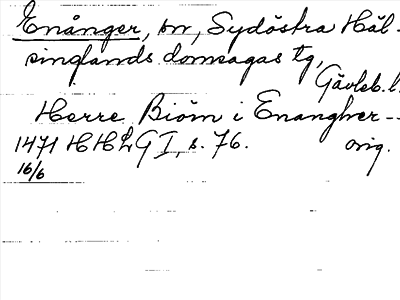 Enånger, sn, Sydöstra Häl-
singlands domsagas tg,
Gävleb. l.
Herre Biöm i Enangher --
1471 HHLG I, s. 76. orig.
16/6